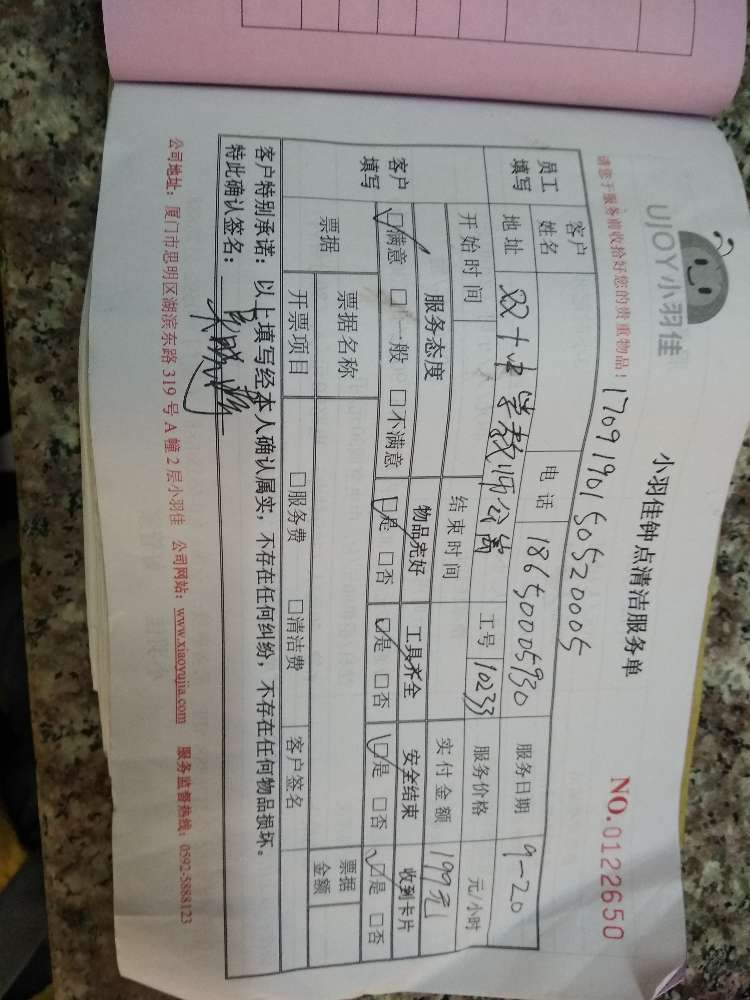 UJOY小羽佳
小羽佳钟点清洁服务单
NO.0122650
请您于服务前收拾好您的贵重物品！
17091901505520005
员工填写
客户姓名
电话 18650005930
服务日期 9-20
地址 双十中学教师公寓
工号 10233
服务价格 元/小时
开始时间
结束时间
实付金额 199元
客户填写
服务态度 物品完好 工具齐全 安全结束 收到卡片
☑满意 □一般 □不满意 ☑是 □否 ☑是 □否 ☑是 □否 ☑是 □否
票据
票据名称
票据金额
开票项目 □服务费 □清洁费 客户签名
客户特别承诺：以上填写经本人确认属实，不存在任何纠纷，不存在任何物品损坏。
特此确认签名：
公司地址：厦门市思明区湖滨东路319号A幢2层小羽佳 公司网站：www.xiaoyujia.com 服务监督热线：0592-5888123